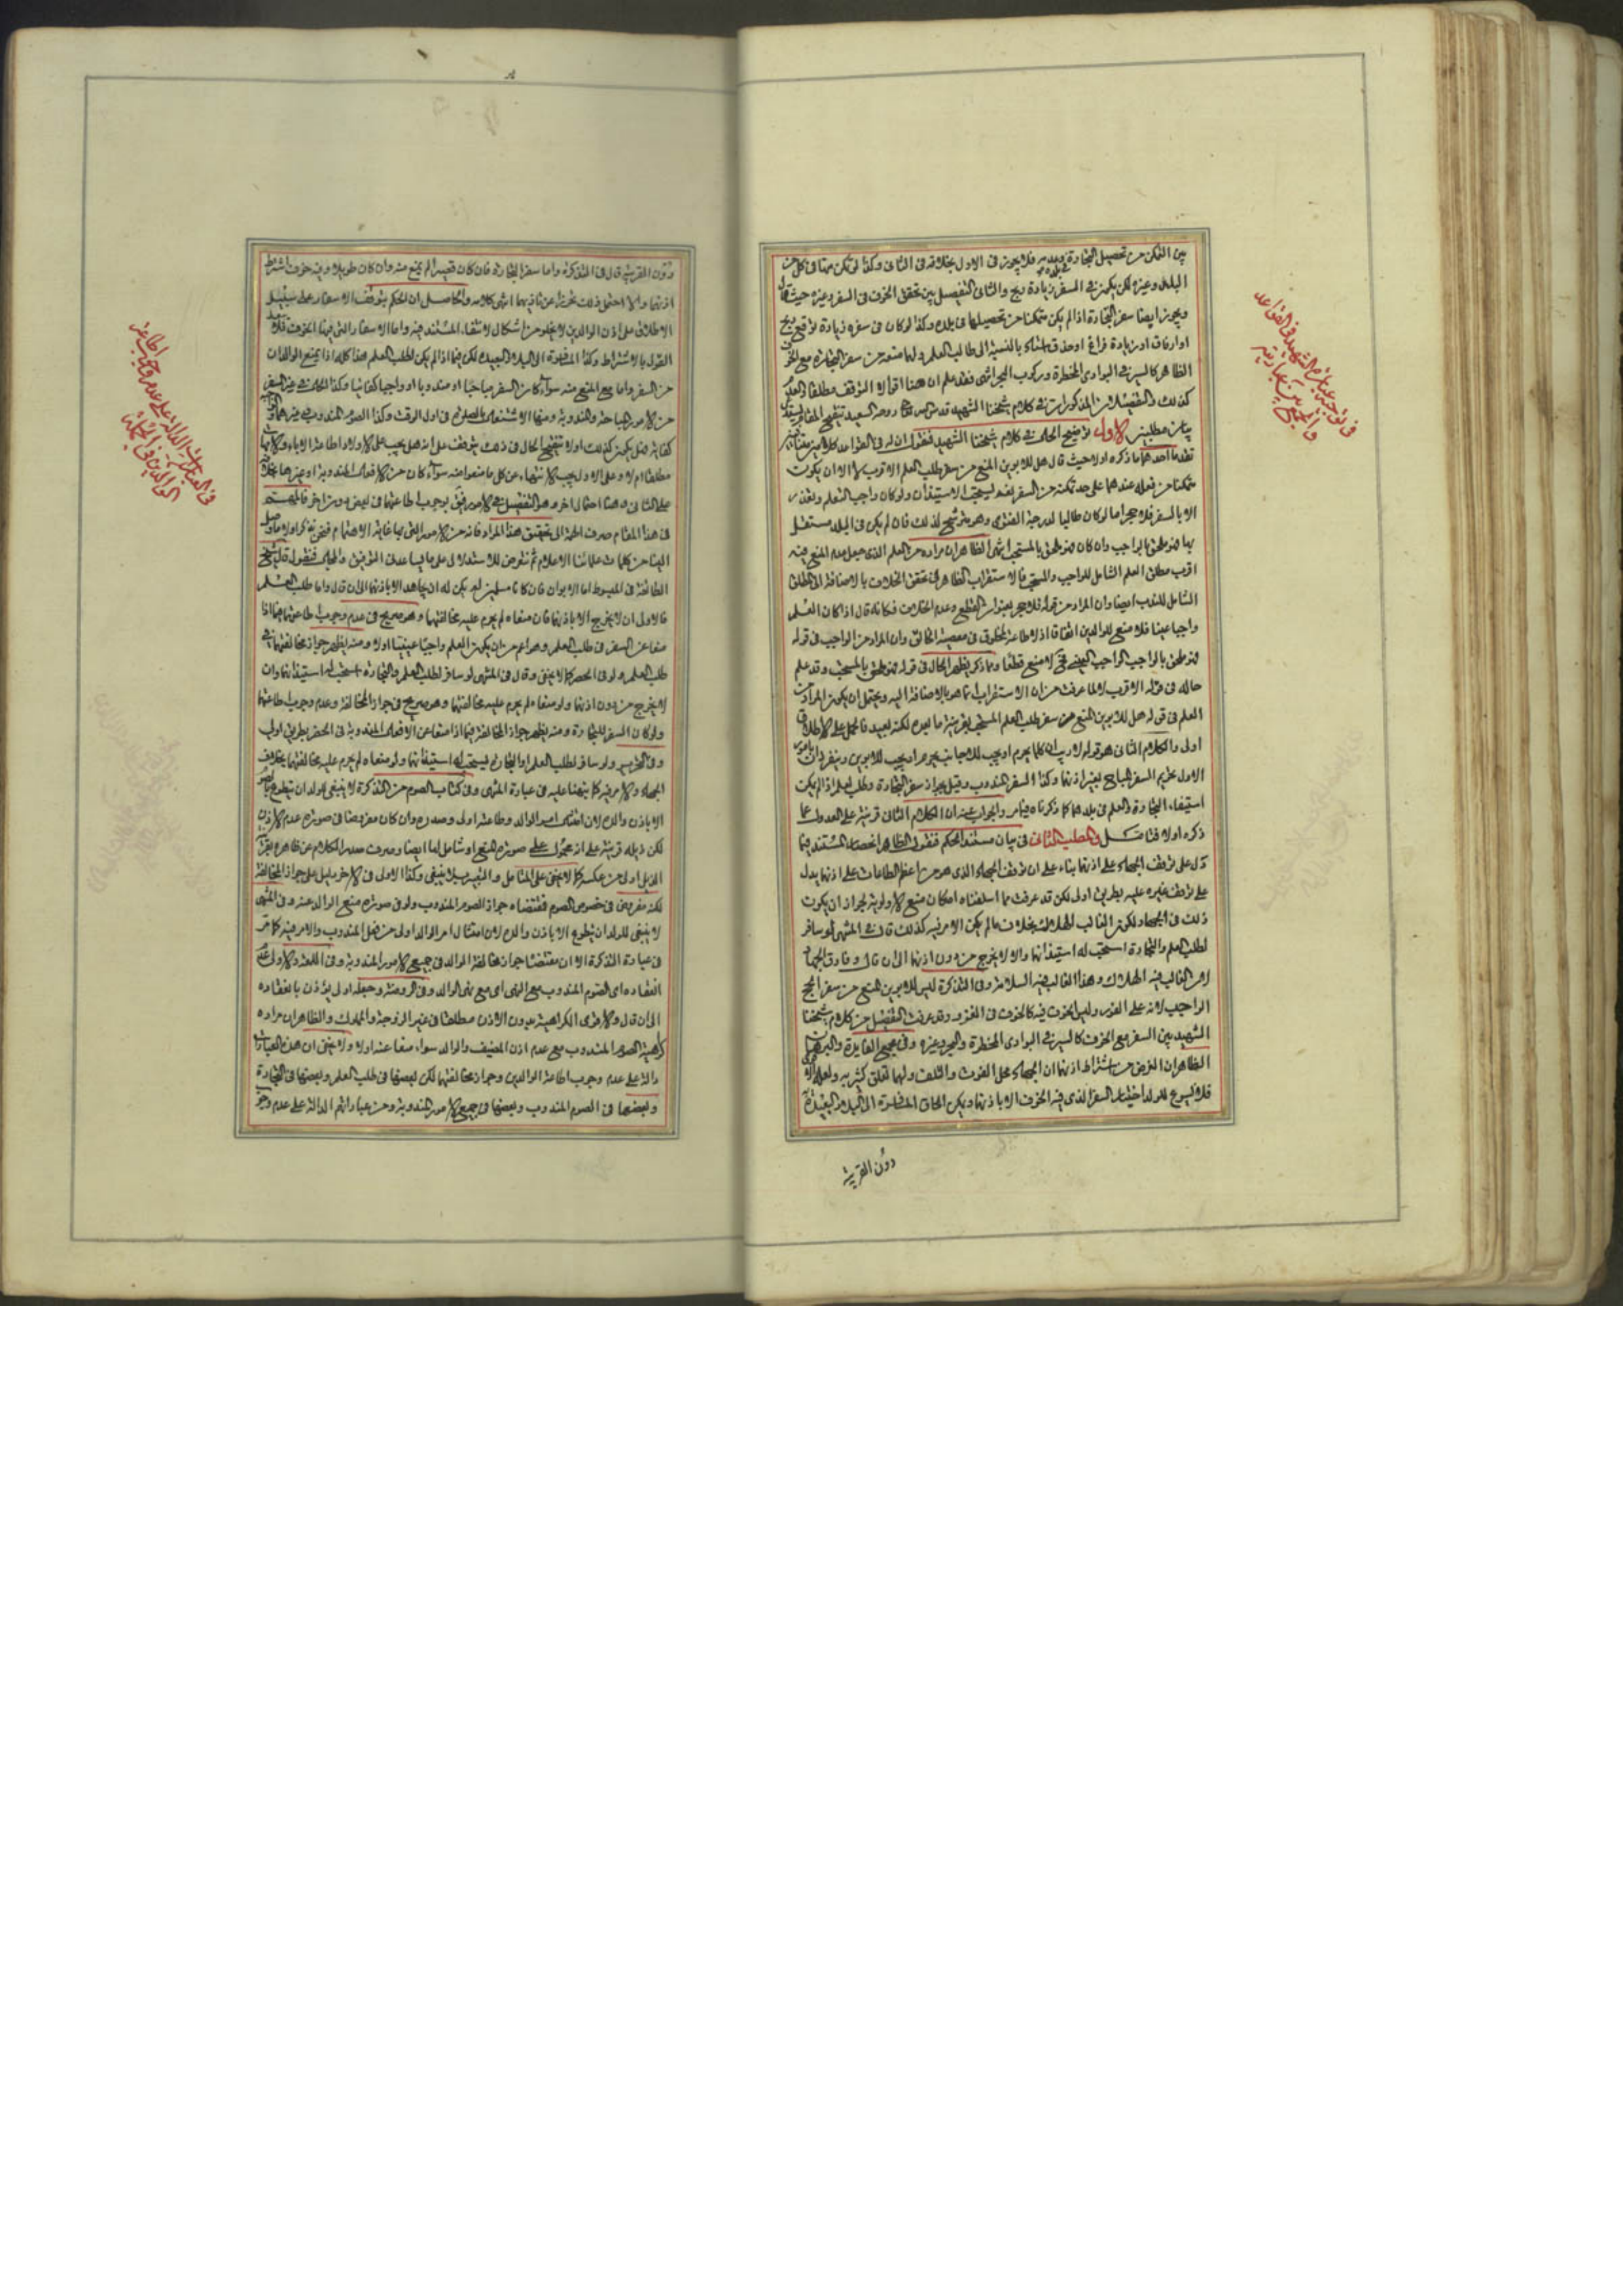 بين التمكن من تحصيل التجارة في بلده فلا يجوز في الاول بخلافه في الثاني وكذا لو تمكن منها في كل من
البلد وغيره لكن يكون في السفر زيادة ربح والثاني التفصيل بين تحقق الخوف في السفر وغيره حيث قال
ويجوز ايضا سفر التجارة اذا لم يكن متمكنا من تحصيلها في بلده وكذا لو كان في سفره زيادة توقع ربح
او ارفاق او زيادة فراغ او حذق استاد بالنسبة الى طالب العلم ولهما منعه من سفر التجارة مع الخوف
الظاهر كالسير في البوادي المخطرة وركوب البحر انتهى فقد علم ان هنا اقوالا التوقف مطلقا والعدم
كذلك والتفصيلان المذكوران في كلام شيخنا الشهيد قدس الله روحه السعيد تنقيح المقام يستدعي
بيان مطلبين الاول توضيح الحال في كلام شيخنا الشهيد فنقول ان له في القواعد كلامين
تقدما احدهما ما ذكره اولا حيث قال هل للابوين المنع من سفر طلب العلم الاقرب لا الا ان يكون
متمكنا من فعله عندهما على حد تمكنه من السفر ليستحب الاستيذان ولو كان واجب التعلم وتعذر
الا بالسفر فلا حجر اما لو كان طالبا لدرجة الفتوى وهو مترشح لذلك فان لم يكن في البلد مستقل
بها فهو ملحق بالواجب وان كان فهو ملحق بالمستحب انتهى الظاهر ان مراده من العلم الذي جعل عدم المنع فيه
اقرب مطلق العلم الشامل للواجب والمستحب فالاستقراب الظاهر في تحقق الخلاف بالاضافة الى المطلق
الشامل للندب ايضا وان المراد من قوله فلا حجر بعنوان القطع وعدم الخلاف فكانه قال اذا كان العلم
واجبا عينا فلا منع للوالدين اتفاقا اذ لا طاعة لمخلوق في معصية الخالق وان المراد من الواجب في قوله
فهو ملحق بالواجب الواجب العيني لا منع قطعا ومما ذكر يظهر الحال في قوله فهو ملحق بالمستحب وقد علم
حاله في قوله الاقرب لا لما عرفت من ان الاستقراب انما هو بالاضافة اليه ويحتمل ان يكون المراد من
العلم في قوله هل للابوين المنع من سفر طلب العلم المستحب بقرينة ما بعده لكنه بعيد فالحمل على الاطلاق
اولى والكلام الثاني هو قوله لا ريب ان كلما يحرم او يجب للاجانب يحرم او يجب للابوين وينفردان بامور
الاول تحريم السفر المباح بغير اذنهما وكذا السفر المندوب وقيل بجواز سفر التجارة وطلب العلم اذا لم يمكن
استيفاء التجارة والعلم في بلدهما كما ذكرناه فيما مر والجواب عنه ان الكلام الثاني قرينة على العدول عما
ذكره اولا فتامل والمطلب الثاني في بيان مستند الحكم فنقول الظاهر انحصار المستند فيما
دل على توقف الجهاد على اذنهما بناء على ان توقف الجهاد الذي هو من اعظم الطاعات على اذنهما يدل
على توقف غيره عليه بطريق اولى لكن قد عرفت مما اسلفناه امكان منع الاولوية لجواز ان يكون
ذلك في الجهاد لكون الغالب الهلاك بخلاف ما لم يكن الامر فيه كذلك قال في المنتهى لو سافر
لطلب العلم والتجارة استحب له استيذانهما والا لا يخرج من دون اذنهما الى ان قال وفارق الجهاد
لان الغالب فيه الهلاك وهذا الغالب فيه السلامة وفي التذكرة ليس للابوين المنع من سفر الحج
الواجب لانه على الفور وليس الخوف فيه كالخوف في الغزو وقد عرفت التفصيل من كلام شيخنا
الشهيد بين السفر مع الخوف كالسير في البوادي المخطرة والبحر وغيره وفي مجمع الفايدة والبرهان
الظاهر ان الغرض من اشتراط اذنهما ان الجهاد محل الفوت والتلف ولهما تعلق كثير به
فلا يسوغ للولد اختيار السفر الذي فيه الخوف الا باذنهما ويمكن الحاق المفطرة الى البلاد البعيدة
دون القرينة
في توجيه عبارة الشهيد في القواعد
والجمع بين عبارتيه
دون القرينة قال في التذكرة واما سفر التجارة فان كان قصيرا لم يمنع منه وان كان طويلا وفيه خوف اشترط
اذنهما والا احتمل ذلك تحرزا عن تاذيهما انتهى كلامه والحاصل ان الحكم بتوقف الاسفار على سبيل
الاطلاق على اذن الوالدين لا يخلو من اشكال لانتفاء المستند فيه واما الاسفار التي فيها الخوف
القول بالاشتراط وكذا المفطرة الى البلاد البعيدة لكن فيما اذا لم يكن لطلب العلم هذا كله اذا لم يمنع الوالدان
من السفر واما مع المنع منه سواء كان السفر مباحا او مندوبا او واجبا كفائيا وكذا الحال في غير السفر
من الامور المباحة والمندوبة ومنها الاشتغال بالصلوة في اول الوقت وكذا الصوم المندوب وغيرهما
كفاية فهل يكون كذلك او لا تنقيح الحال في ذلك يتوقف على انه هل يجب على الاولاد اطاعة الاباء والامهات
مطلقا ام لا وعلى الاول يجب الانتهاء عن كل ما منعوا منه سواء كان من الافعال المندوبة او غيرها بخلافه
على الثاني وهنا احتمال اخر وهو التفصيل في الامور فنقول بوجوب اطاعتهما في بعض دون اخر فالمهم
في هذا المقام صرف الهمة الى تحقيق هذا المرام فانه من الامور التي بها غاية الاهتمام فنحن نذكر اولا ما وصل
الينا من كلمات علمائنا الاعلام ثم نتعرض للاستدلال على ما يساعدنا التوفيق والحال فنقول قال شيخ
الطائفة في المبسوط اما الابوان فان كانا مسلمين لم يكن له ان يجاهد الا باذنهما الى ان قال واما طلب العلم
فالاولى ان لا يخرج الا باذنهما فان منعاه لم يحرم عليه مخالفتهما وهو صريح في عدم وجوب اطاعتهما فيما اذا
منعا عن السفر في طلب العلم وهو اعم من ان يكون العلم واجبا عينيا اولا ومنه يظهر جواز مخالفتهما في
طلب العلم ولو في الحضر كما لا يخفى وقال في المنتهى لو سافر لطلب العلم والتجارة استحب له استيذانهما وان
لا يخرج من دون اذنهما ولو منعاه لم يحرم عليه مخالفتهما وهو صريح في جواز المخالفة وعدم وجوب طاعتهما
ولو كان السفر للتجارة ومنه يظهر جواز المخالفة فيما اذا منعا عن الافعال المندوبة في الحضر بطريق اولى
وفي التحرير ولو سافر لطلب العلم او التجارة يستحب له استيذانهما ولو منعاه لم يحرم عليه مخالفتهما بخلاف
الجهاد والامر فيه كما نبهنا عليه في عبارة المنتهى وفي كتاب الصوم من التذكرة لا ينبغي للولد ان يتطوع بالصوم
الا باذن والده لان امتثال امر الوالد وطاعته اولى وصدره وان كان مفروضا في صورة عدم الاذن
لكن ذيله قرينة على انه محمول على صورة المنع او شامل لها ايضا وصرف صدر الكلام عن ظاهره بقرينة
الذيل اولى من عكسه كما لا يخفى على المتامل والتعبير بلا ينبغي وكذا الاولى في الاخر دليل على جواز المخالفة
لكنه مفروض في خصوص الصوم فمقتضاه جواز الصوم المندوب ولو في صورة منع الوالد عنه وفي المنتهى
لا ينبغي للولد ان يتطوع الا باذن والده لان امتثال امر الوالد اولى من فعل المندوب والامر فيه كما مر
في عبارة التذكرة الا ان مقتضاها جواز مخالفة الوالد في جميع الامور المندوبة وفي اللمعة والاولى عدم
انعقاده اي الصوم المندوب مع النهي اي مع نهي الوالد وفي الروضة وجعله اولى يؤذن بانعقاده
الى ان قال والاقوى الكراهية بدون الاذن مطلقا في غير الزوجة والمملوك والظاهر ان مراده
كراهية الصوم المندوب مع عدم اذن المضيف والوالد سواء منعا عنه اولا ولا يخفى ان هذه العبارات
دالة على عدم وجوب اطاعة الوالدين وجواز مخالفتهما لكن بعضها في طلب العلم وبعضها في التجارة
وبعضها في الصوم المندوب وبعضها في جميع الامور المندوبة ومن عباراتهم الدالة على عدم وجوب
في العبارات الدالة على عدم وجوب اطاعة
الوالدين في الجملة